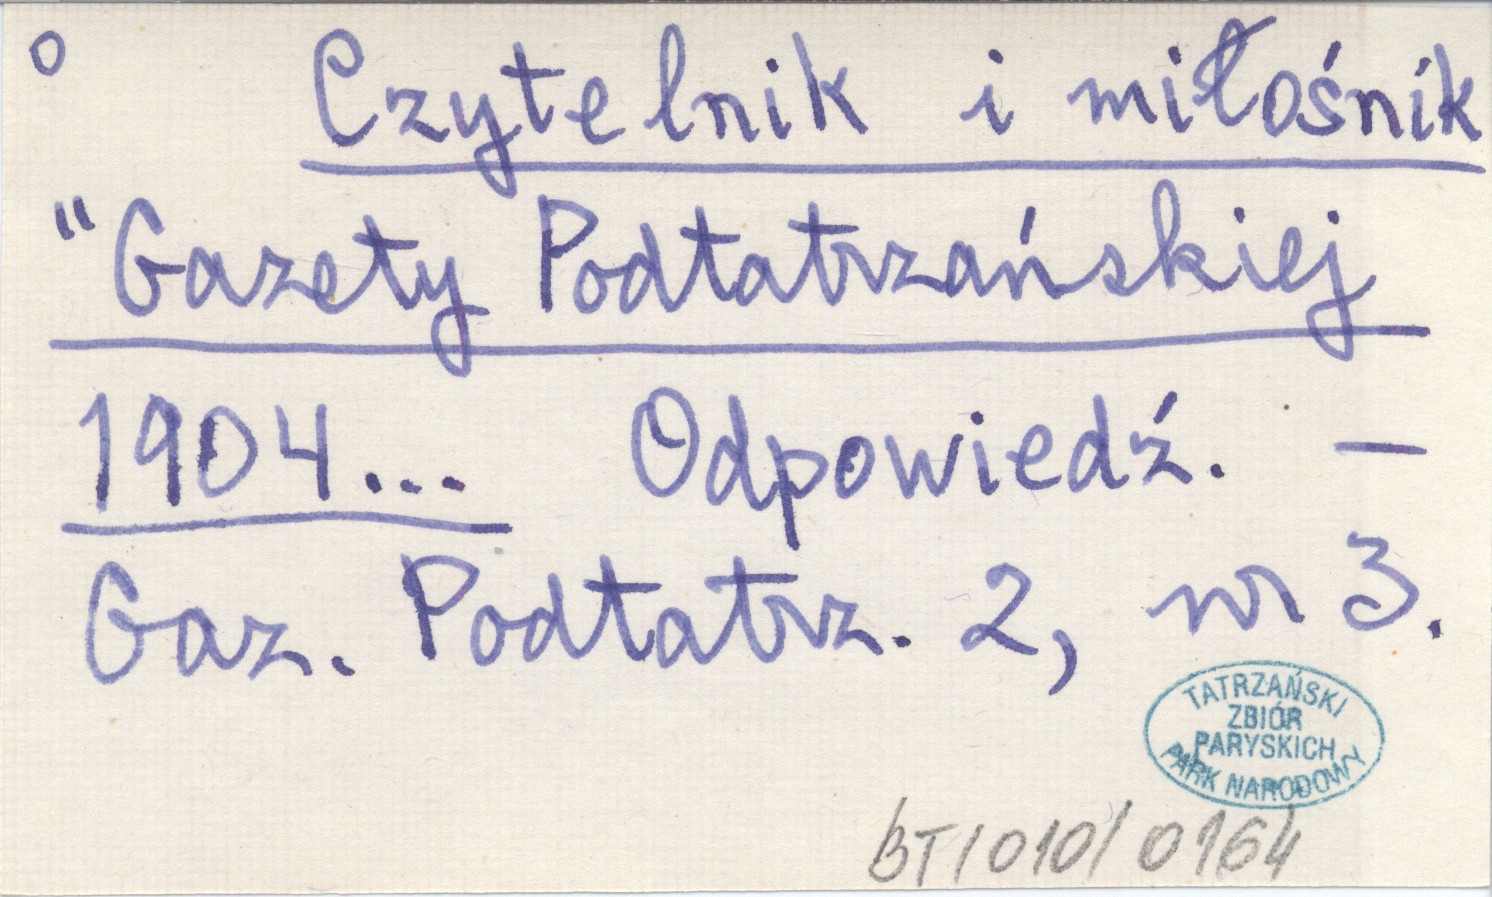 o Czytelnik i miłośnik
"Gazety Podtatrzańskiej
1904... Odpowiedź. –
Gaz. Podtatrz. 2, nr 3.
TATRZAŃSKI
ZBIÓR
PARYSKICH
PARK NARODOWY
BT/010/0164